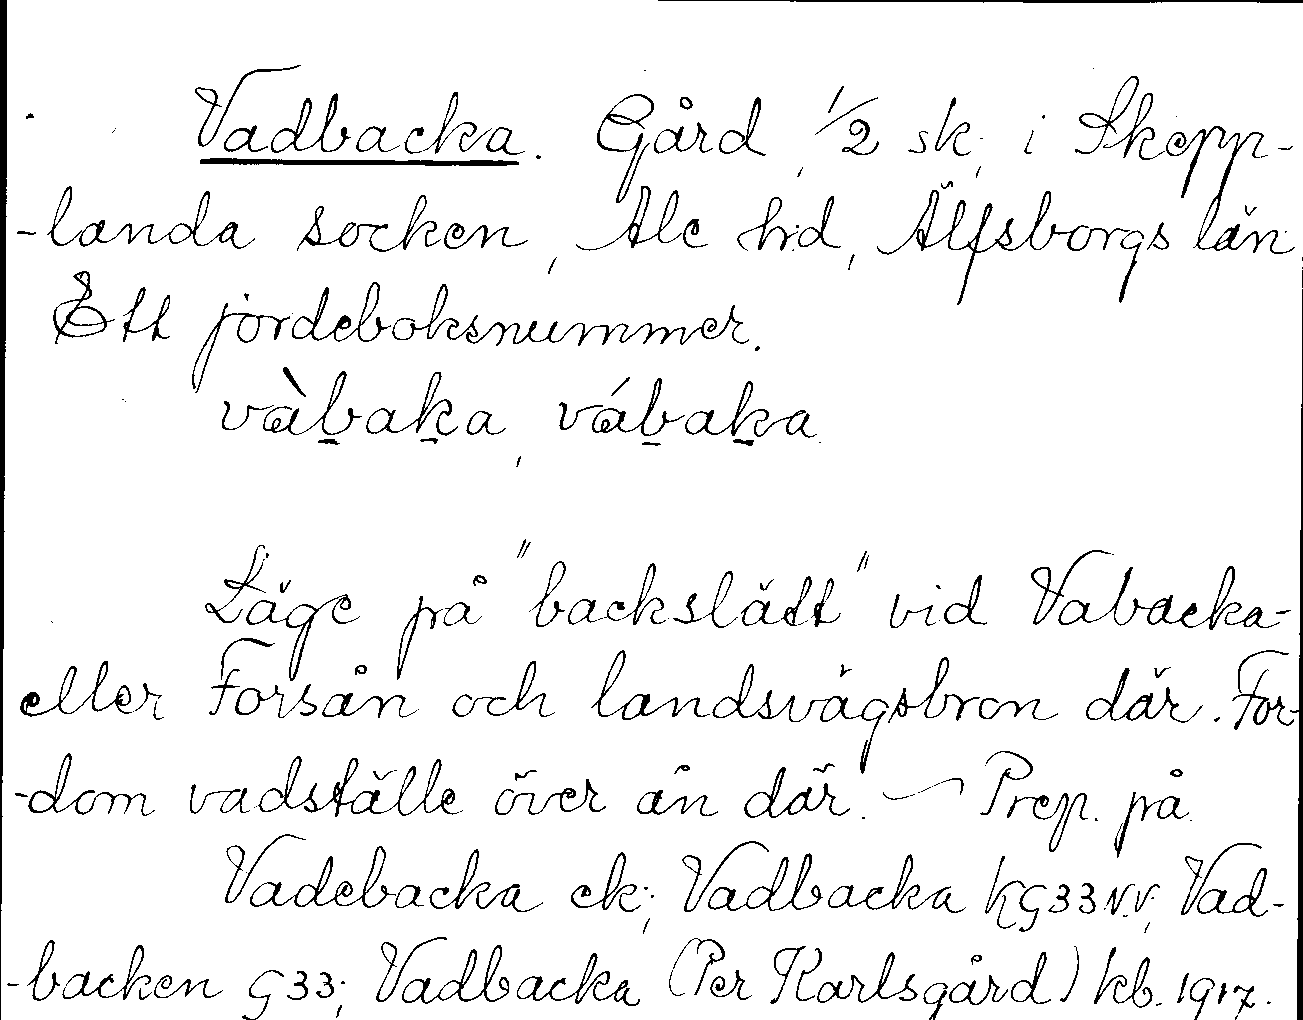 Vadbacka. Gård, 1/2 sk, i Skepp-
-landa socken, Ale hd, Älfsborgs län.
Ett jordeboksnummer.
vàbaka, vábaka.
Läge på "backslätt" vid Vabacka-
eller Forsån och landsvägsbron där. For-
-dom vadställe över ån där. — Prep. på.
Vadebacka ek; Vadbacka kG33NV; Vad-
-backen G33; Vadbacka (Per Karlsgård) kb. 1917.